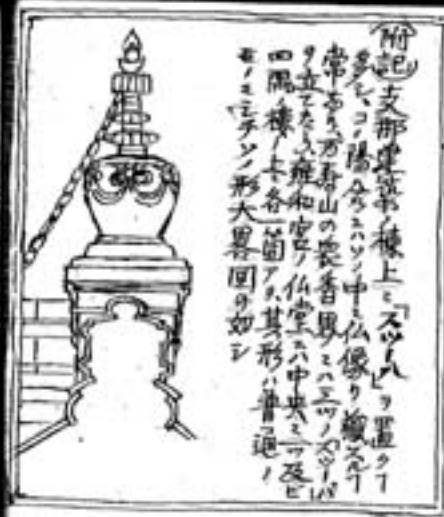 (附記)支那建築ノ棟上ニ「スツーパ」ヲ置クコト
多シ、コノ陽合ニハソノ中ニ仏像ヲ鏤スルヿ
常ナリ、万寿山の衆香界ニハ三ツノスツーパ
ヲ立テたり、雍和宮ノ仏堂ニハ中央ニ一ツ及ビ
四隅ノ棟ノ上ニ各一箇アリ、其形ハ普通ノ
モノニシテソノ形大畧図の如シ